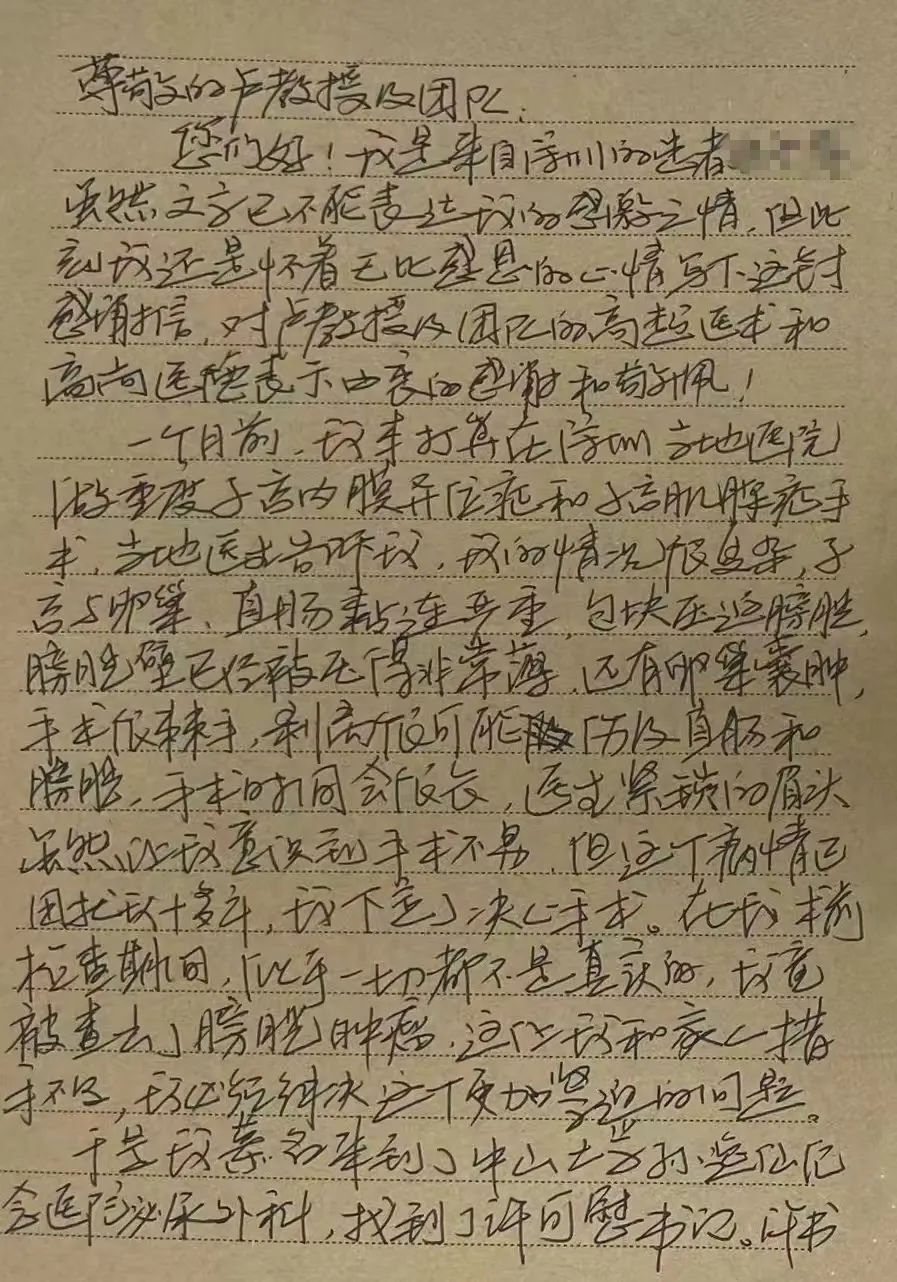 尊敬的卢教授及团队:
您们好!我是来自深圳的患者
虽然文字已不能表达我的感激之情,但此
刻我还是怀着无比感恩的心情写下这封
感谢信,对卢教授及团队的高超医术和
高尚医德表示由衷的感谢和敬佩!
一个月前,我本打算在深圳当地医院
做重度子宫内膜异位症和子宫肌腺症手
术,当地医生告诉我,我的情况很复杂,子
宫与卵巢、直肠黏连严重,包块压迫膀胱,
膀胱壁已经被压得非常薄,还有卵巢囊肿,
手术很棘手,剥离很可能伤及直肠和
膀胱,手术时间会很长,医生紧锁的眉头
虽然让我意识到手术不易,但这个病情已
困扰我十多年,我下定了决心手术。在我术前
检查期间,似乎一切都不是真实的,我竟
被查出了膀胱肿瘤,这让我和家人措
手不及,我必须解决这个更加紧迫的问题。
于是我慕名来到了中山大学孙逸仙纪
念医院泌尿外科,找到了许可慰书记。许书